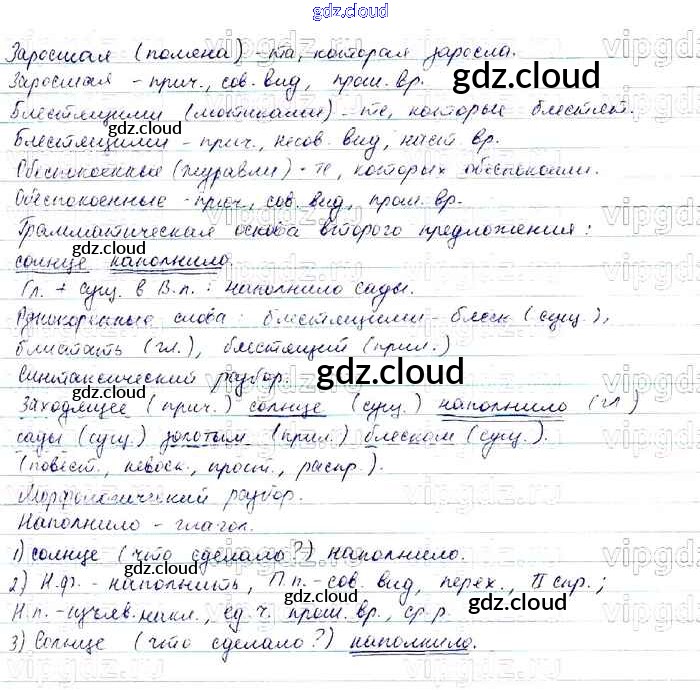 gdz.cloud
Заросшая (поляна) - та, которая заросла.
Заросшая - прич., сов. вид, прош. вр.
gdz.cloud
Блестящими (мотиками) - те, которые блестят.
gdz.cloud
Блестящими - прич., несов. вид, наст. вр.
Обеспокоенные (журавли) - те, которых обеспокоили.
Обеспокоенные - прич., сов. вид, прош. вр.
Грамматическая основа второго предложения:
gdz.cloud
солнце наполнило.
Гл. + сущ. в В.п.: наполнило сады.
Однокоренные слова: блестящими - блеск (сущ.),
gdz.cloud
блистать (гл.), блестящий (прил.)
Синтаксический разбор.
gdz.cloud
Заходящее (прич.) солнце (сущ.) наполнило (гл)
сады (сущ.) золотым (прил.) блеском (сущ.).
gdz.cloud
(повест., невоск., прост., распр.).
Морфологический разбор.
Наполнило - глагол.
gdz.cloud
1) солнце (что сделало?) наполнило.
2) Н.ф. - наполнить, П.п. - сов. вид, перех., II спр.;
gdz.cloud
Н.п. - изъяв. накл., ед. ч. прош. вр., ср. р.
gdz.cloud
3) Солнце (что сделало?) наполнило.